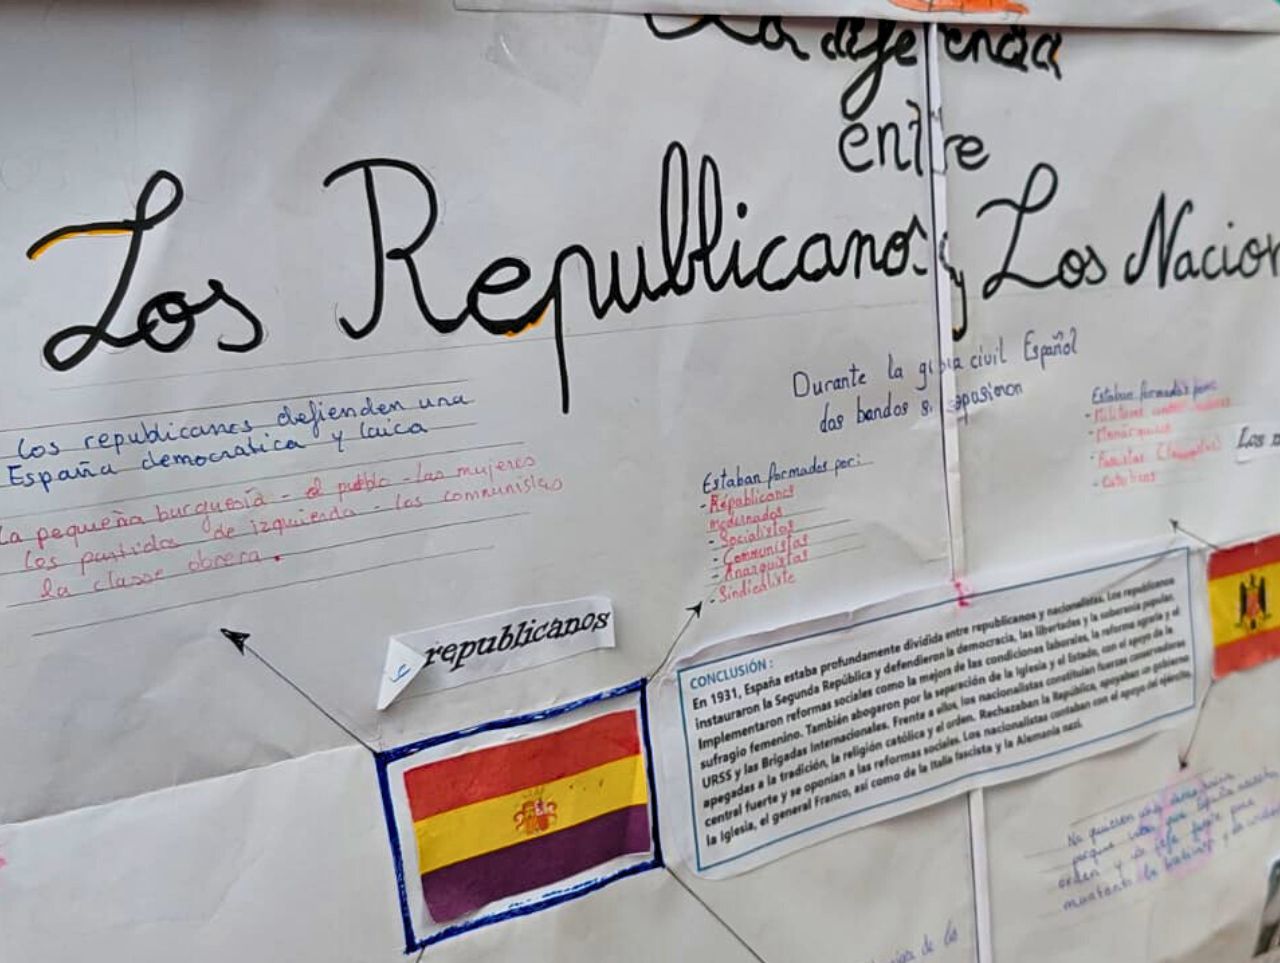 La diferencia
entre
Los Republicanos y Los Nacion
los republicanos defienden una
España democratica y laica
La pequeña burguesía - el pueblo - las mujeres
Los partidos de izquierda - los communistas
la classe obrera.
Durante la civil Español
dos bandos
Estaban formados por:
- Républicanos
moderados
- Socialistas
- Communistas
- Anarquistas
- Sindicaliste
Estaban formados por:
- Militares
- Monárquicos
- Fascistas
Los n
republicanos
CONCLUSIÓN :
En 1931, España estaba profundamente dividida entre republicanos y nacionalistas. Los republicanos
instauraron la Segunda República y defendieron la democracia, las libertades y la soberanía popular.
Implementaron reformas sociales como la mejora de las condiciones laborales, la reforma agraria y el
sufragio femenino. También abogaron por la separación de la Iglesia y el Estado, con el apoyo de la
URSS y las Brigadas Internacionales. Frente a ellos, los nacionalistas constituían fuerzas conservadoras
apegadas a la tradición, la religión católica y el orden. Rechazaban la República, apoyaban un gobierno
central fuerte y se oponían a las reformas sociales. Los nacionalistas contaban con el apoyo del ejército,
la Iglesia, el general Franco, así como de la Italia fascista y la Alemania nazi.
No quieren
porque España
orden y
de la